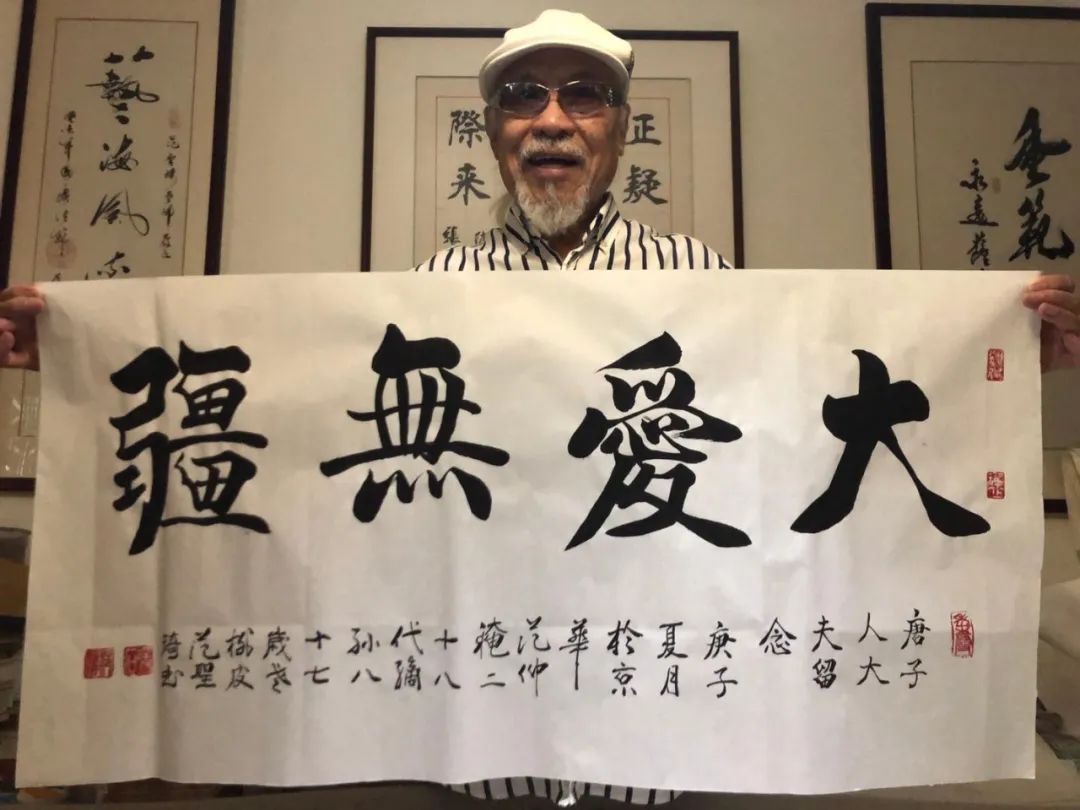 大愛無疆
唐子
人大
夫留
念
庚子
夏月
於京
華
范仲
淹二
十八
代嫡
孙八
十七
歲老
樹皮
范聖
琦书
範
永遠
正疑
際来
張
藝海風